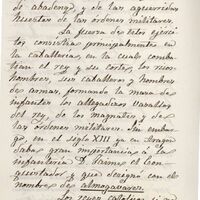 de abadengo, y de las aguerridas
huestes de las órdenes militares.
La fuerza de estos ejerci-
tos consistía principalmente en
la caballería, en la cual comba-
tían el rey y su corte, los ricos
hombres, sus caballeros y hombres
de armas, formando la masa de
infantes los allegadizos vasallos
del rey, de los magnates y de
las órdenes militares. Sin embar-
go, en el siglo XIII ya en Aragon
daba gran importancia á la
infantería D. Jaime el Con-
quistador y que designó con el
nombre de almogavares.
Los reyes católicos